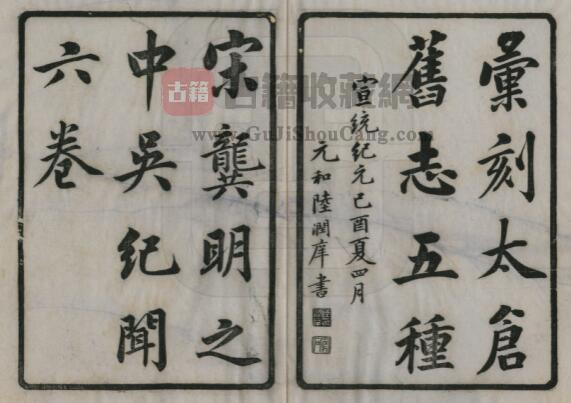 彙刻太倉
舊志五種
宣統紀元己酉夏四月
元和陸潤庠書
宋龔明之
中吳紀聞
六卷
古籍
古籍收藏網
www.GuJiShouCang.com